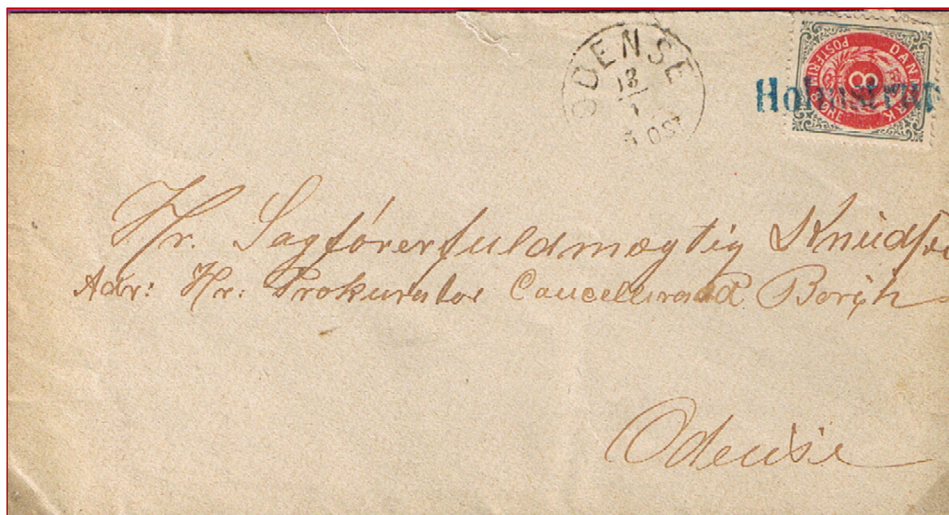 ODENSE
13
1
POST
Holmstrup
DANMARK
8
POSTFRIM 8 ØRE
Hr. Sagførerfuldmægtig Knudse
Adr: Hr: Prokurator Cancelliraad Borch
Odense